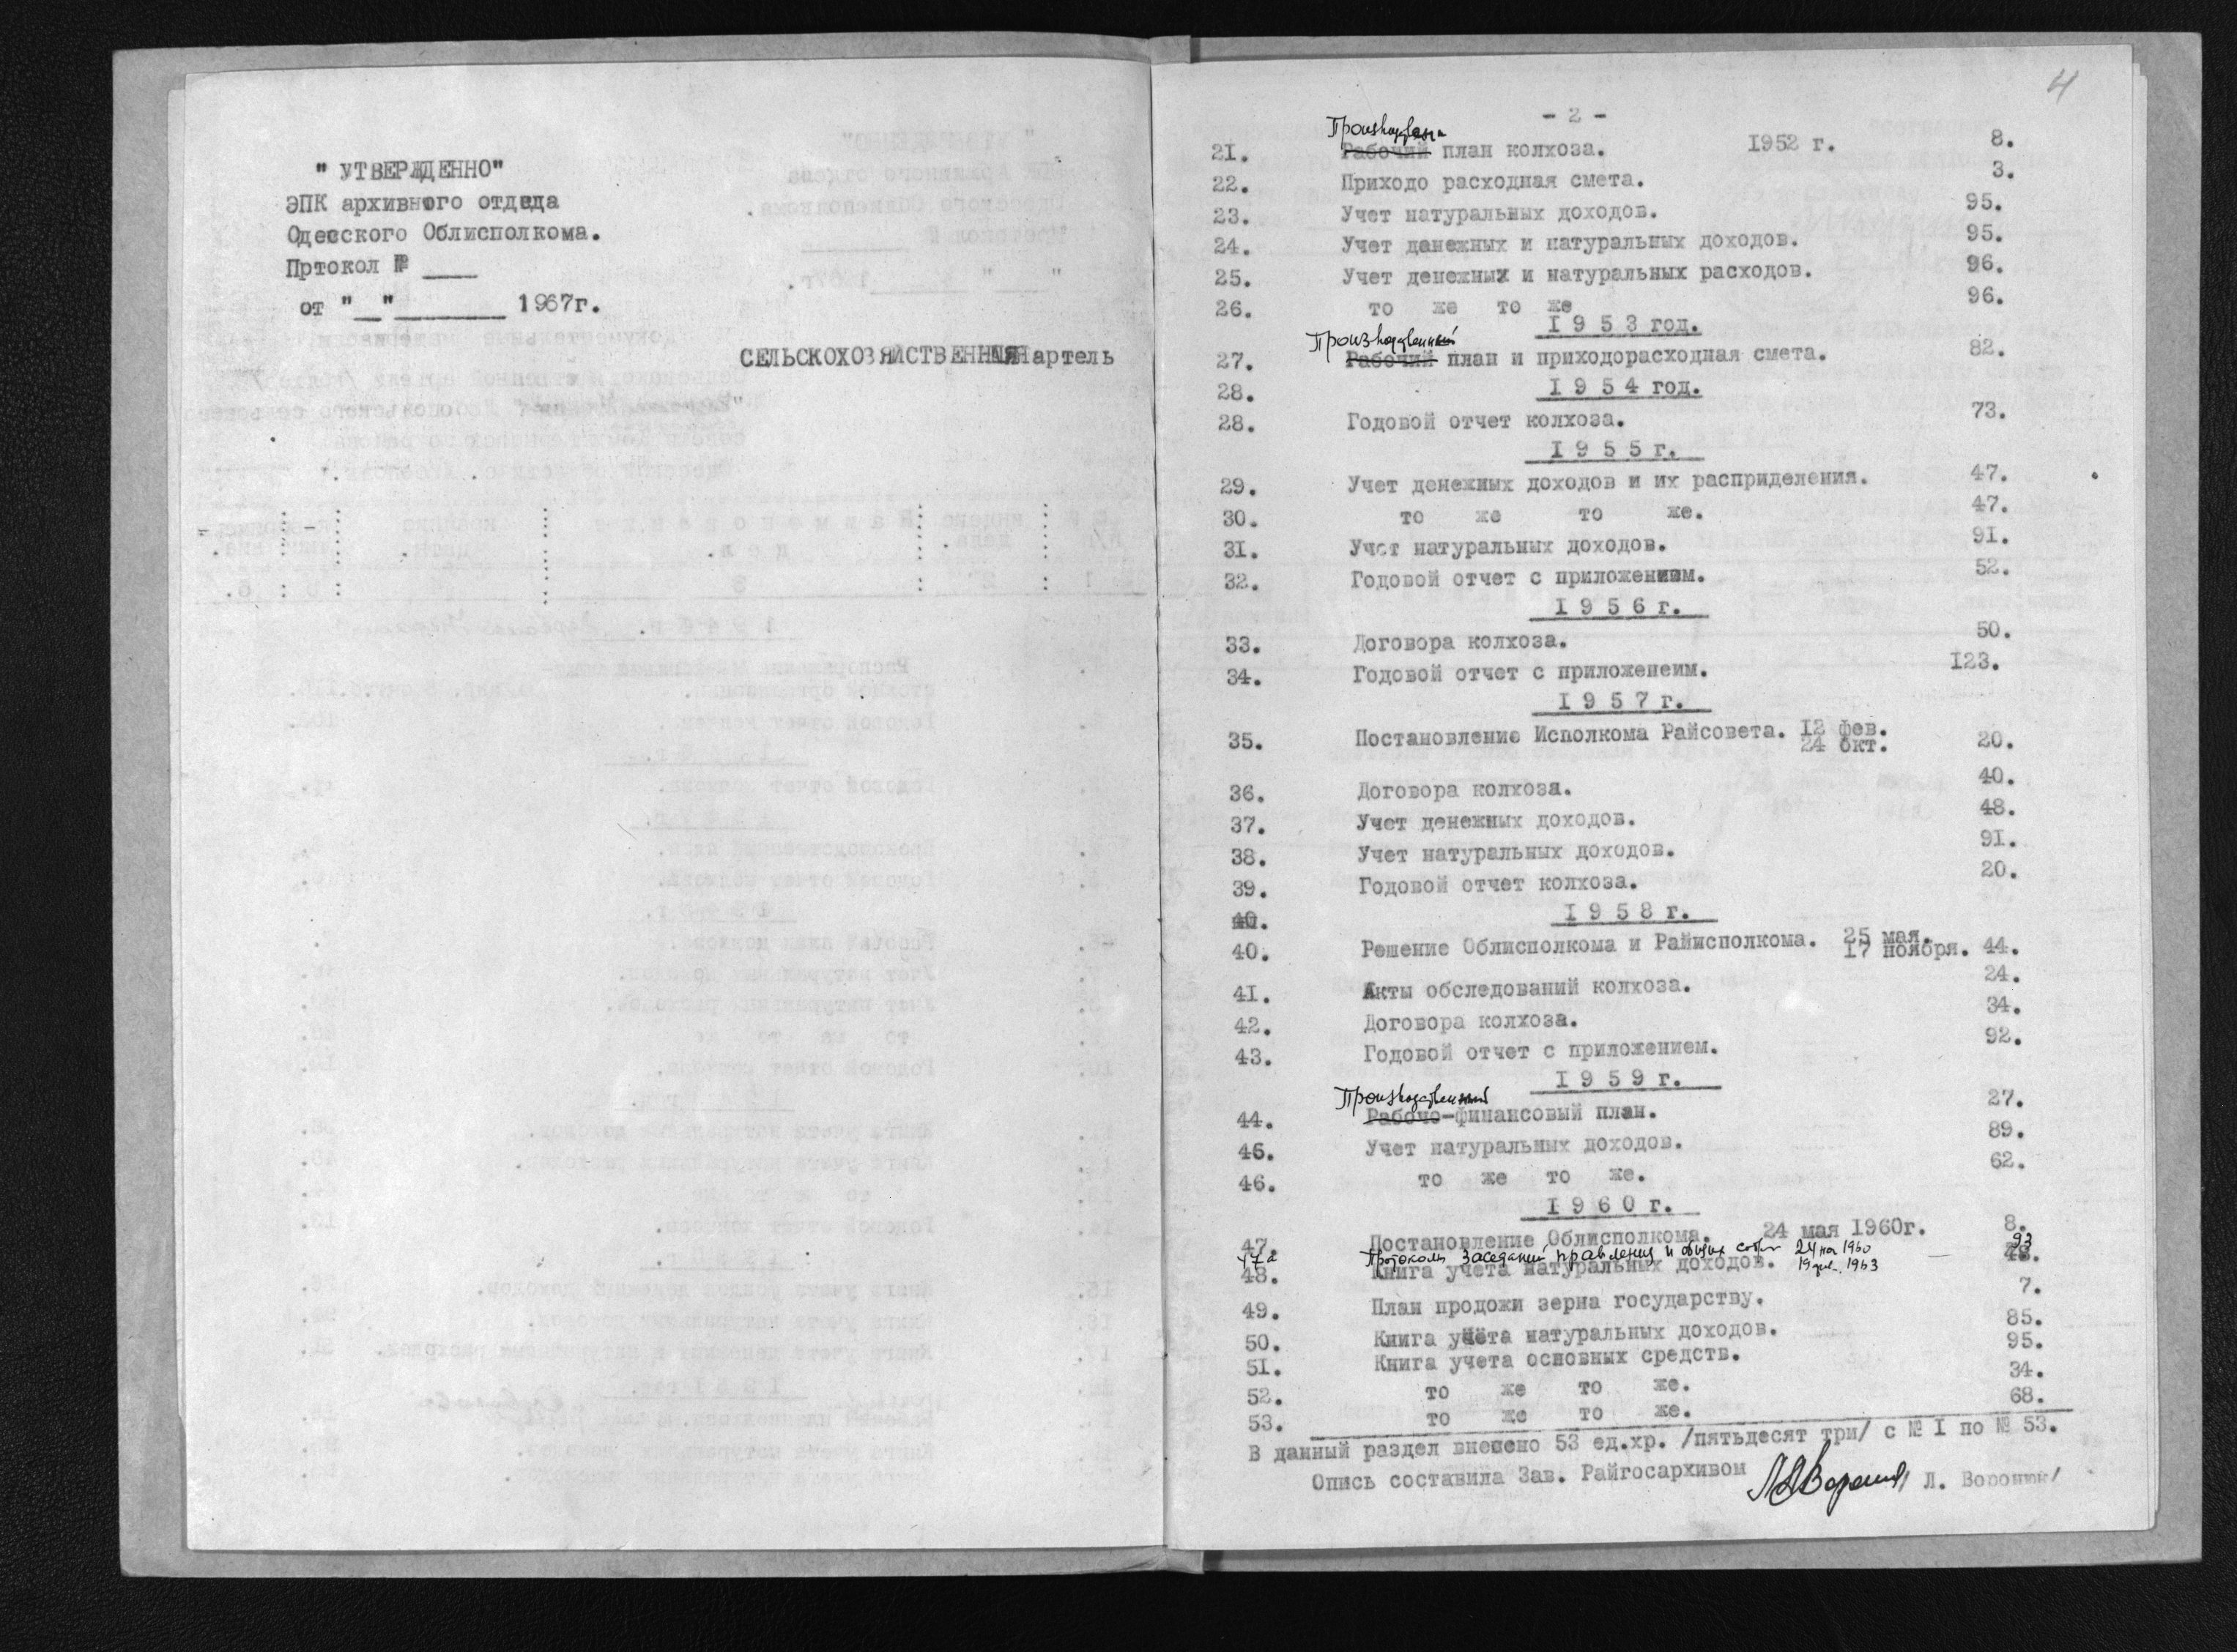 " УТВЕРЖДЕННО"
ЭПК архивного отдела
Одесского Облисполкома.
Пртокол № ____
от "__"________ 1967г.
СЕЛЬСКОХОЗЯЙСТВЕННАЯ артель
4
- 2 -
Производствен
21. Рабочий план колхоза. 1952 г. 8.
22. Приходо расходная смета. 3.
23. Учет натуральных доходов. 95.
24. Учет данежных и натуральных доходов. 95.
25. Учет денежных и натуральных расходов. 96.
26. то же то же 96.
I 9 5 3 год.
Производственный
27. Рабочий план и приходорасходная смета. 82.
28. I 9 5 4 год.
28. Годовой отчет колхоза. 73.
I 9 5 5 г.
29. Учет денежных доходов и их расприделения. 47.
30. то же то же. 47.
31. Учет натуральных доходов. 91.
32. Годовой отчет с приложением. 52.
I 9 5 6 г.
33. Договора колхоза. 50.
34. Годовой отчет с приложенеим. I23.
I 9 5 7 г.
35. Постановление Исполкома Райсовета. I2 фев.
24 окт. 20.
36. Договора колхоза. 40.
37. Учет денежных доходов. 48.
38. Учет натуральных доходов. 91.
39. Годовой отчет колхоза. 20.
40. I 9 5 8 г.
40. Решение Облисполкома и Райисполкома. 25 мая.
I7 ноября. 44.
41. Акты обследований колхоза. 24.
42. Договора колхоза. 34.
43. Годовой отчет с приложением. 92.
I 9 5 9 г.
Производственный
44. Рабочо-финансовый план. 27.
45. Учет натуральных доходов. 89.
46. то же то же. 62.
I 9 6 0 г.
47. Постановление Облисполкома. 24 мая I960г. 8.
47а Протоколы заседаний правления и общих собр 24 1960 — 93
19 1963
48. Книга учета натуральных доходов. 48.
49. План продожи зерна государству. 7.
50. Книга учёта натуральных доходов. 85.
51. Книга учета основных средств. 95.
52. то же то же. 34.
53. то же то же. 68.
В данный раздел внесено 53 ед.хр. /пятьдесят три/ с № I по № 53.
Опись составила Зав. Райгосархивом / Л. Воронюк/